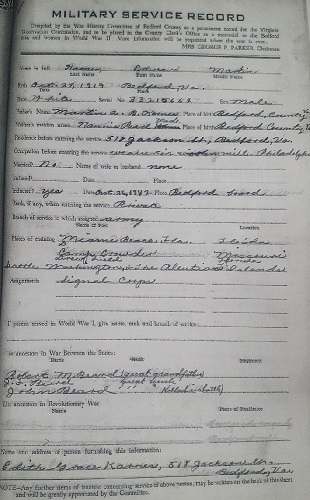 MILITARY SERVICE RECORD
Compiled by the War History Committee of Bedford County, as a permanent record for the Virginia
Conservation Commission, and to be placed in the County Clerk's Office as a memorial to the Bedford
men and women in World War II. More information will be requested when the war is over.
MRS. GEORGE P. PARKER, Chairman
Name in full Karnes, Edward Martin
Last Name First Name Middle Name
Born Oct. 27, 1919 Bedford, Va.
Race White Serial No. Sex Male
Father's Name Martin Karnes Place of birth Bedford, County Va
Mother's maiden name Nannie Place of birth Bedford County Va
Residence before entering the service 518 Jackson St., Bedford, Va.
Occupation before entering the service Weaver in mill, Philadelphia
Married? No. Name of wife or husband none
Place
Inducted? yes Date Oct. 26, 1942 Place Bedford board
Rank, if any, when entering the service Private
Branch of service in which assigned army
Name of Post Location
Places of training Florida
Camp Crowder Missouri
Drew Field Florida
Seattle Washington, The Aleutian Islands
Assignments Signal Corps
If person served in World War I, give name, rank and branch of service:
Use ancestors in War Between the States:
Name Rank
Robert M. Beard (great grandfather)
great uncle
John Beard " " (killed in battle)
Use ancestors in Revolutionary War
Name Place of Residence
Name and address of person furnishing this information:
Edith Grace Karnes, 518 Jackson St.
Bedford, Va.
NOTE—Any further items of interest concerning service of above names, may be written on the back of this sheet
and will be greatly appreciated by the Committee.